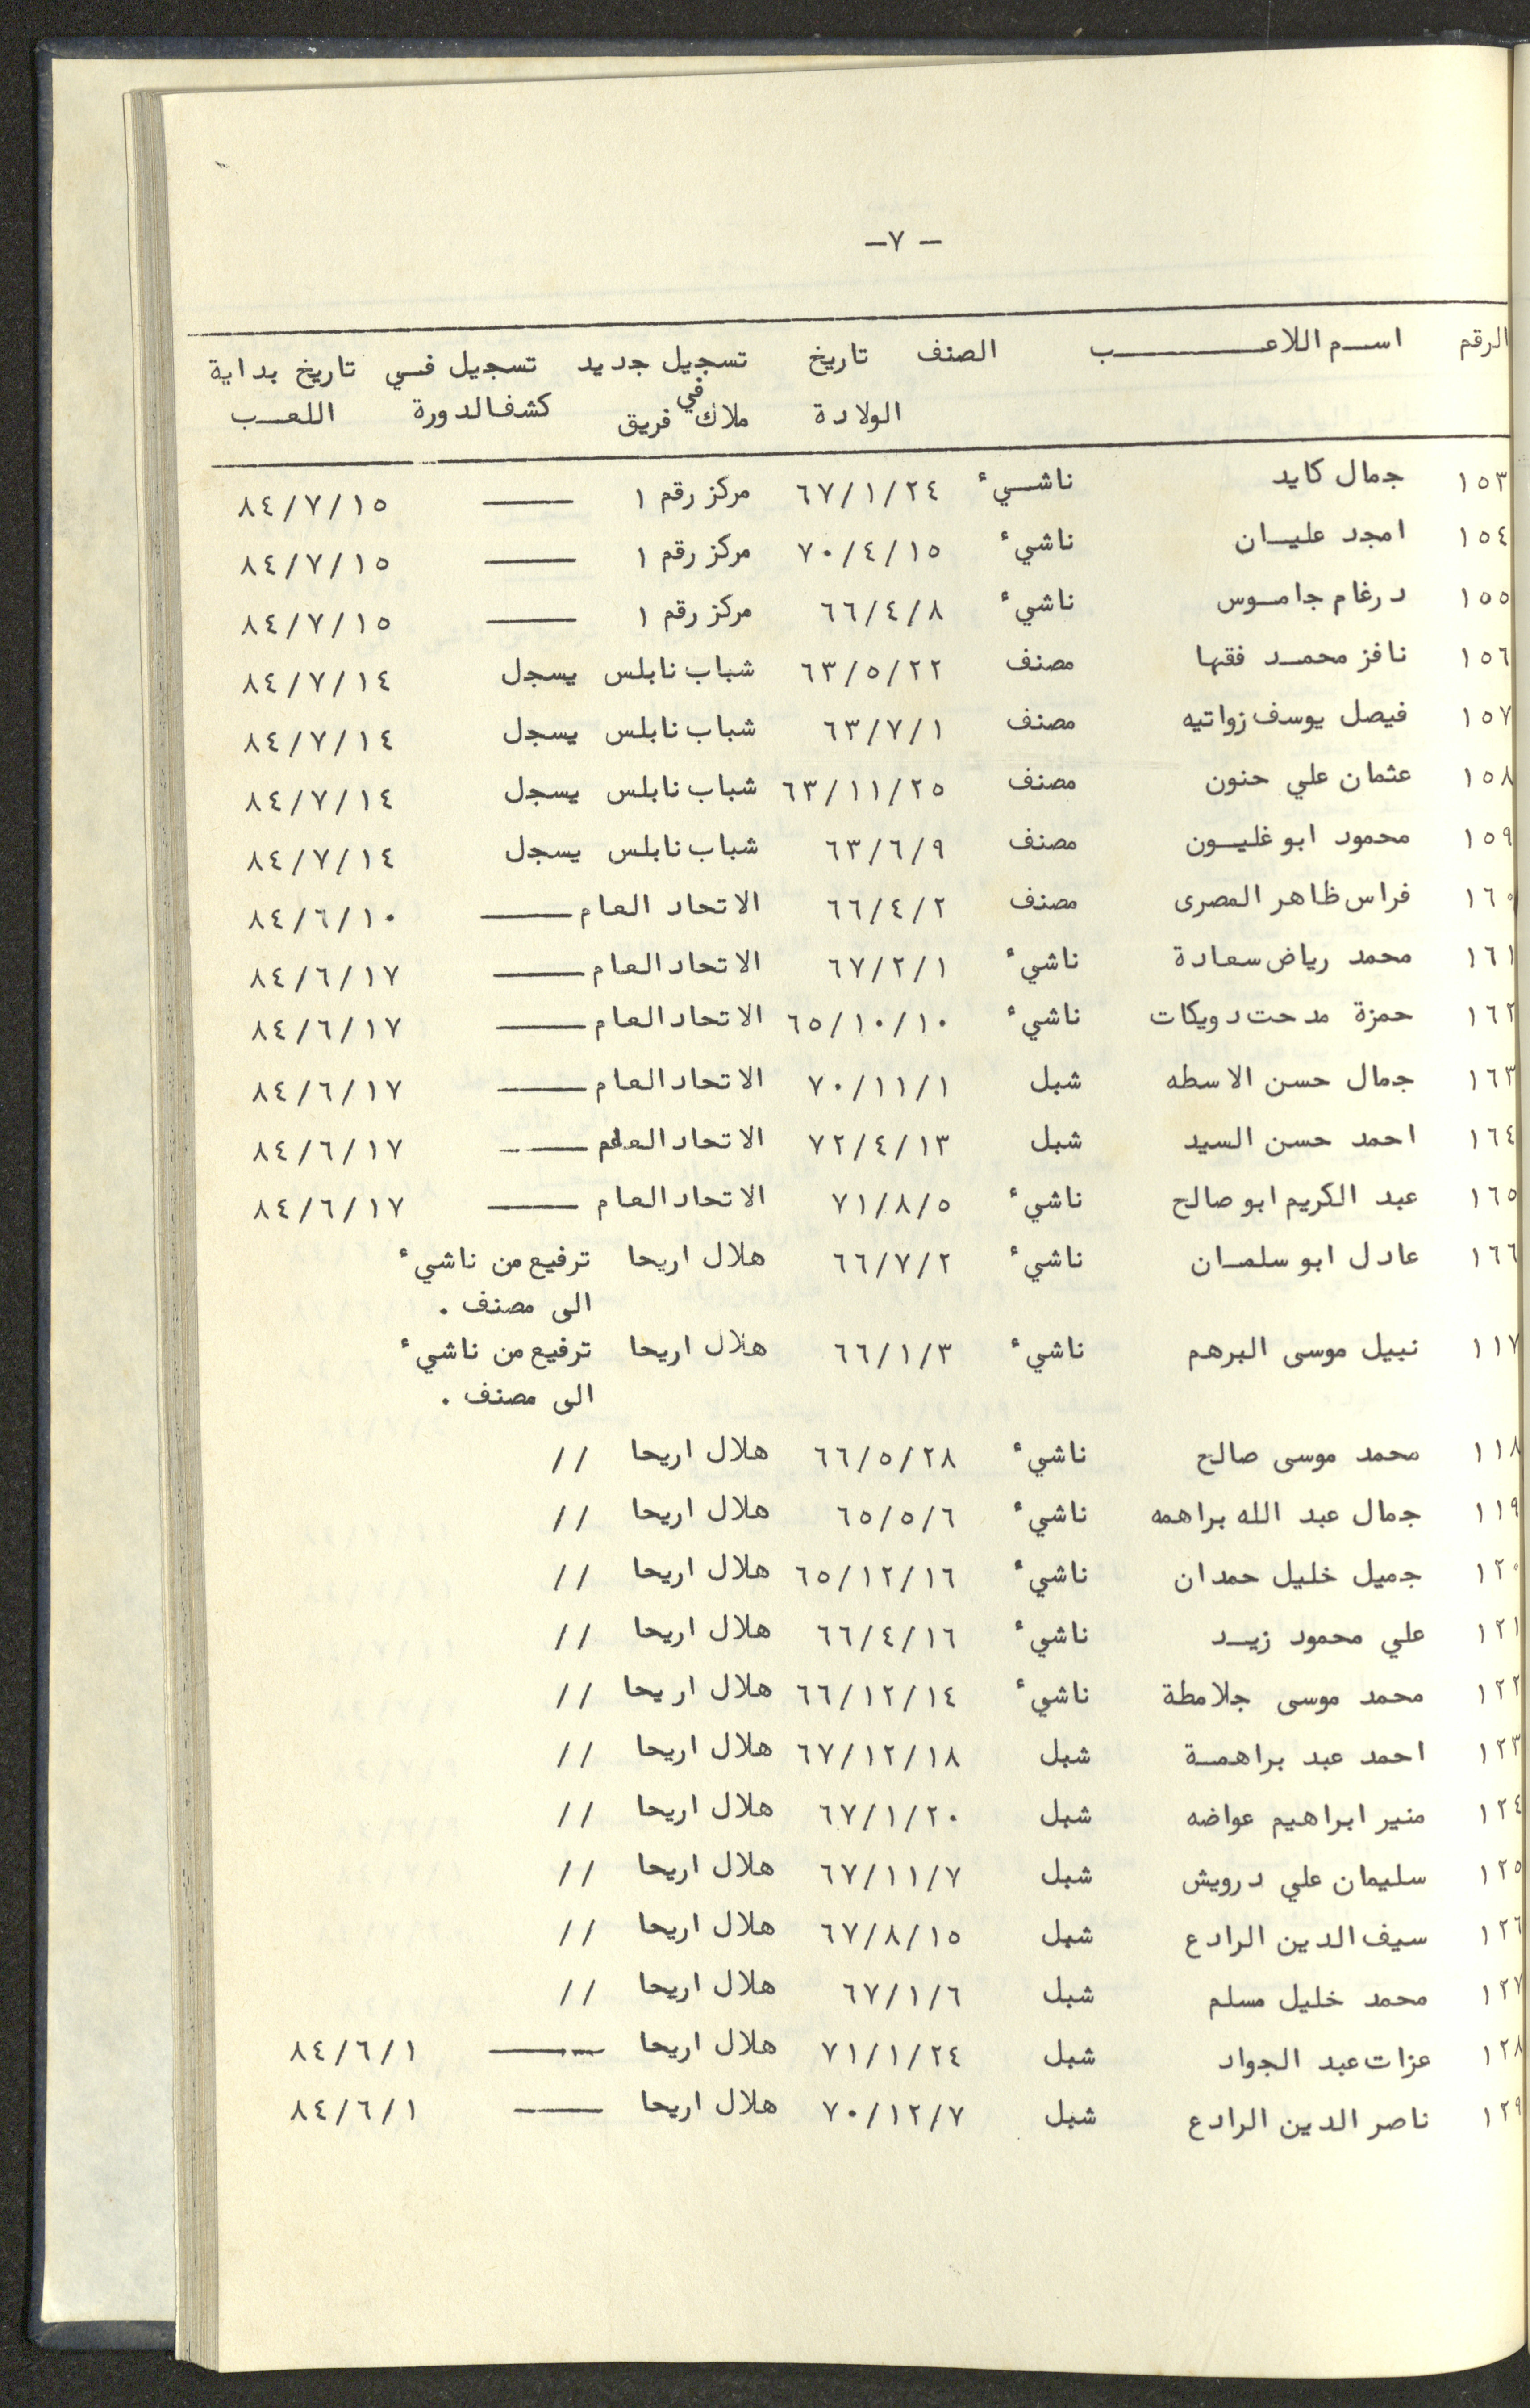 – ٧–
الرقم اسم اللاعب الصنف تاريخ تسجيل جديد تسجيل في تاريخ بداية
الولادة ملاك في فريق كشف الدورة اللعب
١٥٣ جمال كايد ناشيء ٦٧/١/٢٤ مركز رقم ١ —— ٨٤/٧/١٥
١٥٤ امجد عليان ناشيء ٧٠/٤/١٥ مركز رقم ١ —— ٨٤/٧/١٥
١٥٥ درغام جاموس ناشيء ٦٦/٤/٨ مركز رقم ١ —— ٨٤/٧/١٥
١٥٦ نافز محمد فقها مصنف ٦٣/٥/٢٢ شباب نابلس يسجل ٨٤/٧/١٤
١٥٧ فيصل يوسف زواتيه مصنف ٦٣/٧/١ شباب نابلس يسجل ٨٤/٧/١٤
١٥٨ عثمان علي حنون مصنف ٦٣/١١/٢٥ شباب نابلس يسجل ٨٤/٧/١٤
١٥٩ محمود ابو غليون مصنف ٦٣/٦/٩ شباب نابلس يسجل ٨٤/٧/١٤
١٦٠ فراس ظاهر المصرى مصنف ٦٦/٤/٢ الاتحاد العام —— ٨٤/٦/١٠
١٦١ محمد رياض سعادة ناشيء ٦٧/٢/١ الاتحاد العام —— ٨٤/٦/١٧
١٦٢ حمزة مدحت دويكات ناشيء ٦٥/١٠/١٠ الاتحاد العام —— ٨٤/٦/١٧
١٦٣ جمال حسن الاسطه شبل ٧٠/١١/١ الاتحاد العام —— ٨٤/٦/١٧
١٦٤ احمد حسن السيد شبل ٧٢/٤/١٣ الاتحاد العام —— ٨٤/٦/١٧
١٦٥ عبد الكريم ابو صالح ناشيء ٧١/٨/٥ الاتحاد العام —— ٨٤/٦/١٧
١٦٦ عادل ابو سلمان ناشيء ٦٦/٧/٢ هلال اريحا ترفيع من ناشيء
الى مصنف .
١١٧ نبيل موسى البرهم ناشيء ٦٦/١/٣ هلال اريحا ترفيع من ناشيء
الى مصنف .
١١٨ محمد موسى صالح ناشيء ٦٦/٥/٢٨ هلال اريحا //
١١٩ جمال عبد الله براهمه ناشيء ٦٥/٥/٦ هلال اريحا //
١٢٠ جميل خليل حمدان ناشيء ٦٥/١٢/١٦ هلال اريحا //
١٢١ علي محمود زيد ناشيء ٦٦/٤/١٦ هلال اريحا //
١٢٢ محمد موسى جلامطة ناشيء ٦٦/١٢/١٤ هلال اريحا //
١٢٣ احمد عبد براهمة شبل ٦٧/١٢/١٨ هلال اريحا //
١٢٤ منير ابراهيم عواضه شبل ٦٧/١/٢٠ هلال اريحا //
١٢٥ سليمان علي درويش شبل ٦٧/١١/٧ هلال اريحا //
١٢٦ سيف الدين الرادع شبل ٦٧/٨/١٥ هلال اريحا //
١٢٧ محمد خليل مسلم شبل ٦٧/١/٦ هلال اريحا //
١٢٨ عزات عبد الجواد شبل ٧١/١/٢٤ هلال اريحا —— ٨٤/٦/١
١٢٩ ناصر الدين الرادع شبل ٧٠/١٢/٧ هلال اريحا —— ٨٤/٦/١